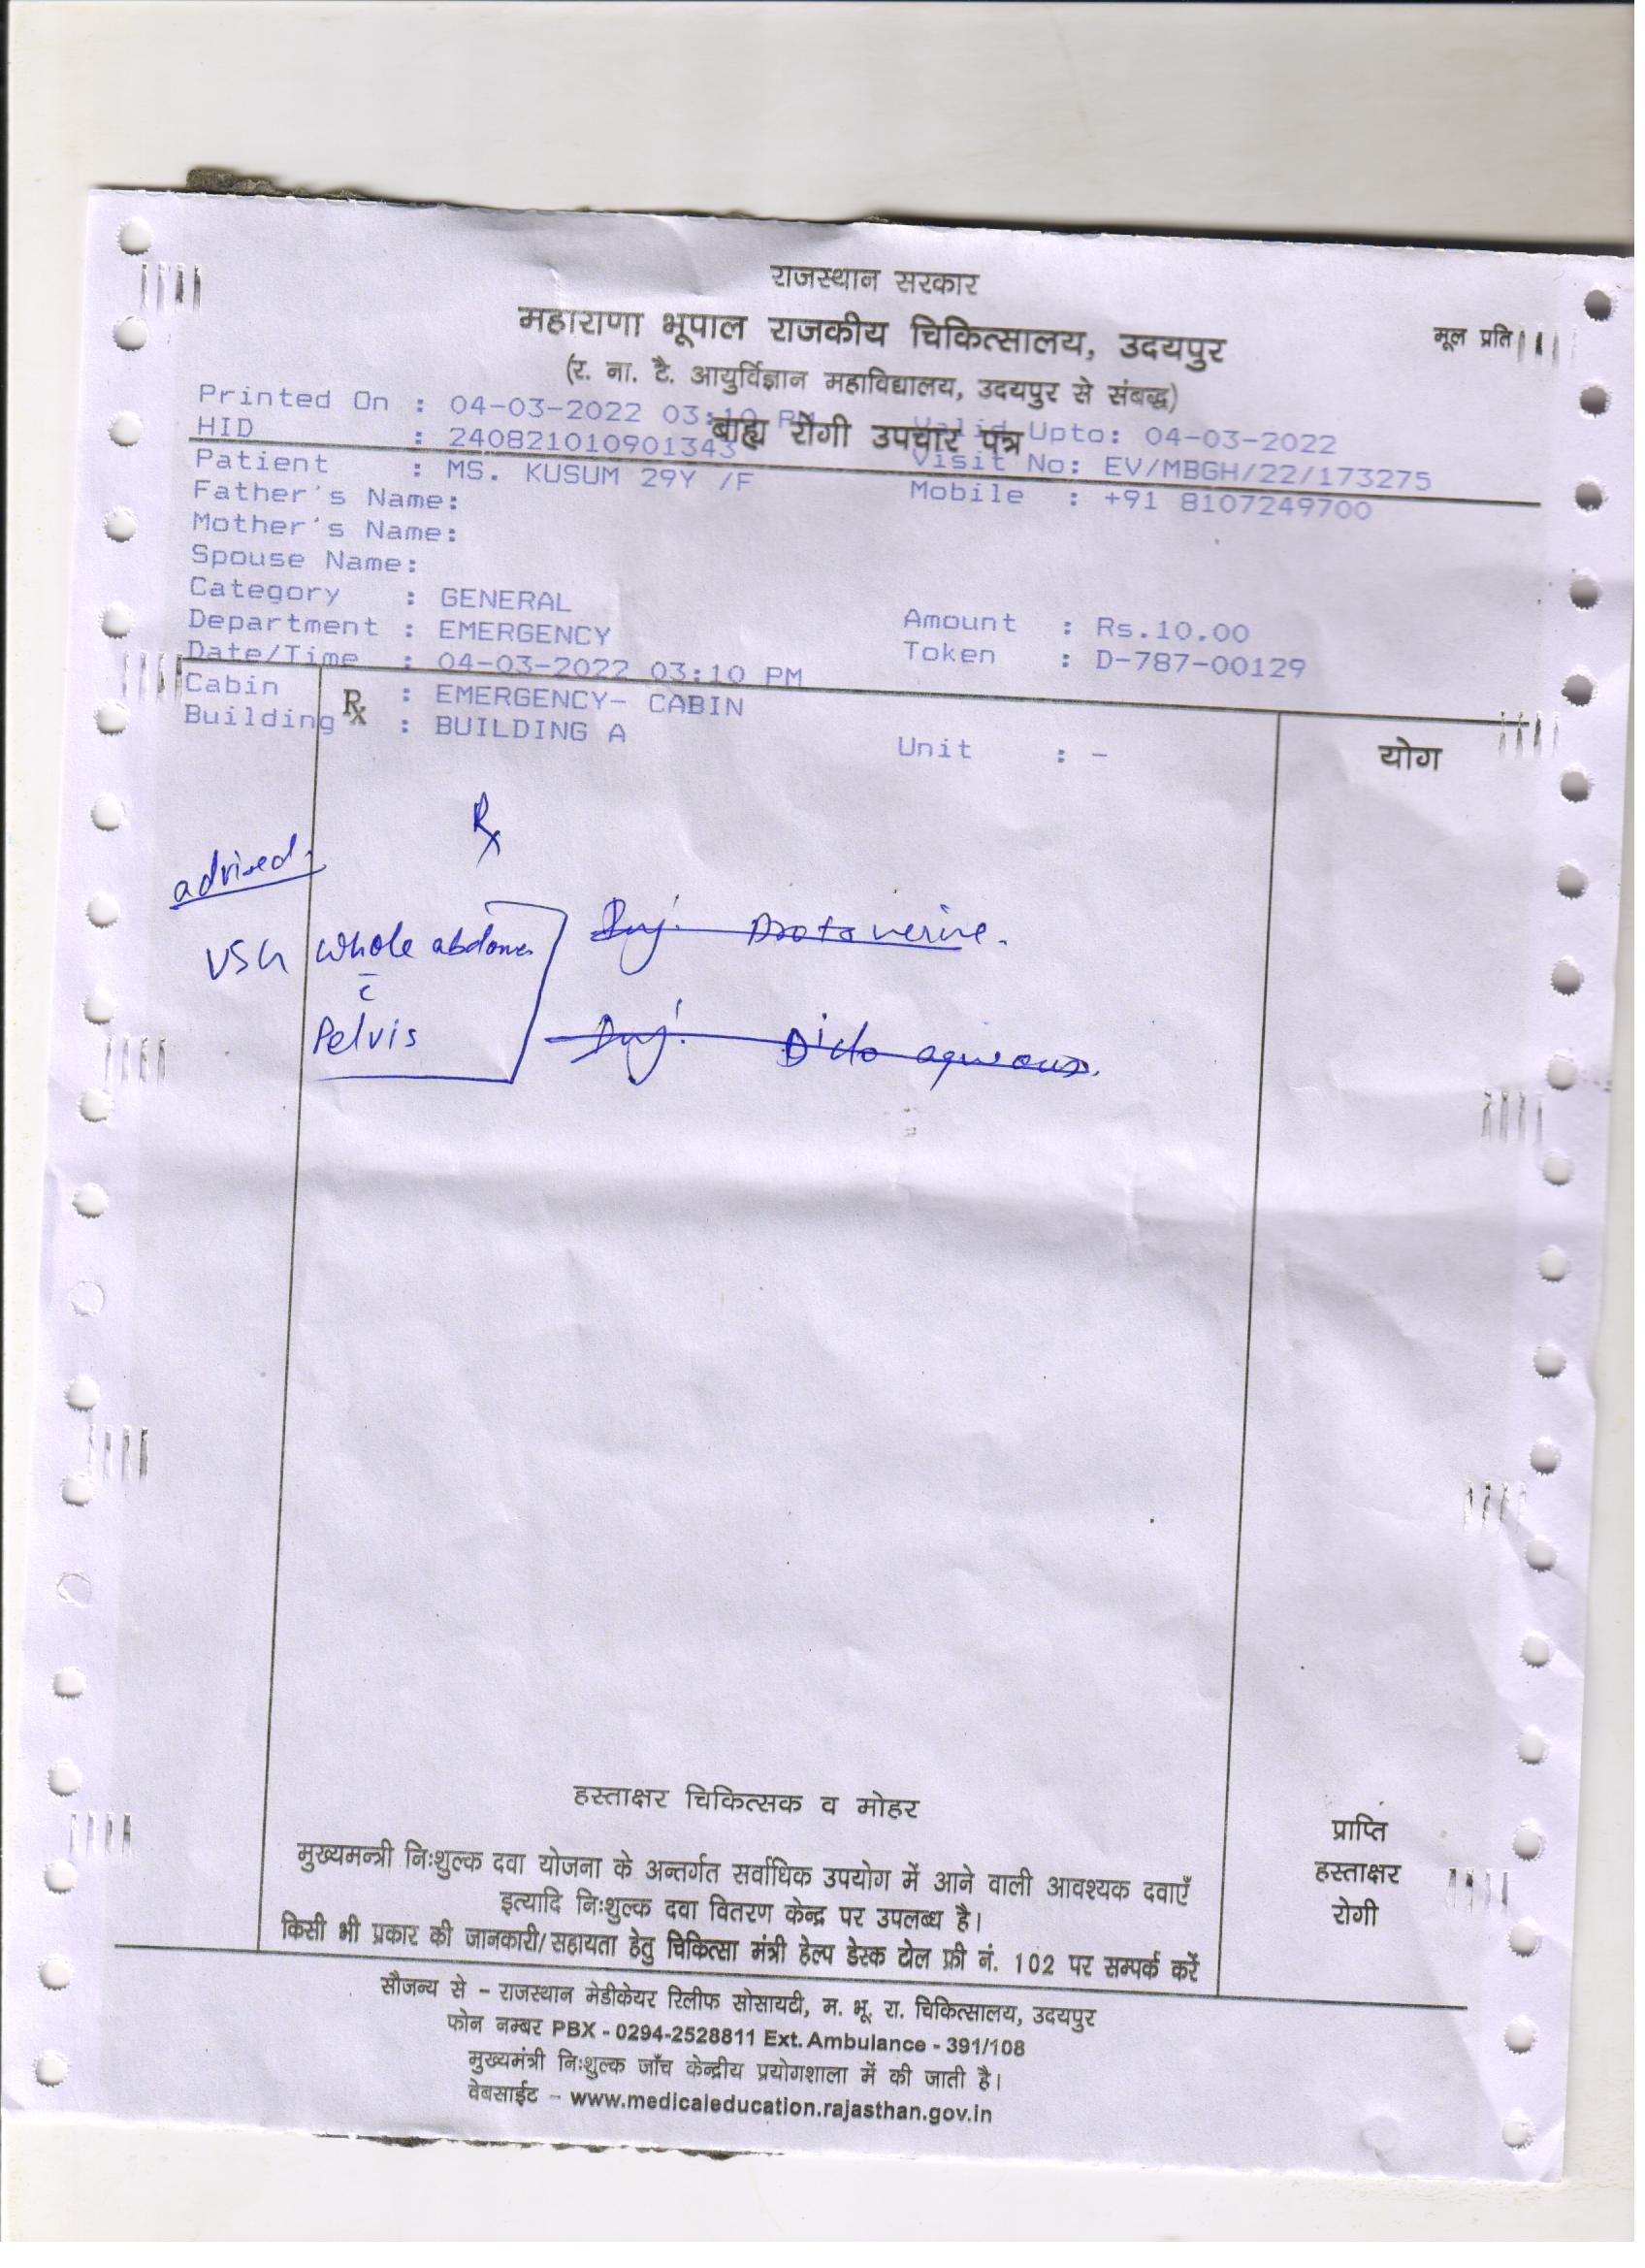 राजस्थान सरकार
महाराणा भूपाल राजकीय चिकित्सालय, उदयपुर
मूल प्रति
(र. ना. टै. आयुर्विज्ञान महाविद्यालय, उदयपुर से संबद्ध)
बाह्य रोगी उपचार पत्र
Printed On : 04-03-2022 03:10 PM Valid Upto: 04-03-2022
HID : 240821010901343 Visit No: EV/MBGH/22/173275
Patient : MS. KUSUM 29Y /F Mobile : +91 8107249700
Father's Name:
Mother's Name:
Spouse Name:
Category : GENERAL Amount : Rs.10.00
Department : EMERGENCY Token : D-787-00129
Date/Time : 04-03-2022 03:10 PM
Cabin : EMERGENCY- CABIN
Building : BUILDING A Unit : -
Rx
योग
Rx
advised:
USG whole abdomen
c̄
Pelvis
Inj. Drotaverine.
Inj. Diclo aqueous.
हस्ताक्षर चिकित्सक व मोहर
मुख्यमन्त्री निःशुल्क दवा योजना के अन्तर्गत सर्वाधिक उपयोग में आने वाली आवश्यक दवाएँ
इत्यादि निःशुल्क दवा वितरण केन्द्र पर उपलब्ध है।
किसी भी प्रकार की जानकारी/सहायता हेतु चिकित्सा मंत्री हेल्प डेस्क टोल फ्री नं. 102 पर सम्पर्क करें
प्राप्ति
हस्ताक्षर
रोगी
सौजन्य से – राजस्थान मेडीकेयर रिलीफ सोसायटी, म. भू. रा. चिकित्सालय, उदयपुर
फोन नम्बर PBX - 0294-2528811 Ext. Ambulance - 391/108
मुख्यमंत्री निःशुल्क जाँच केन्द्रीय प्रयोगशाला में की जाती है।
वेबसाईट – www.medicaleducation.rajasthan.gov.in